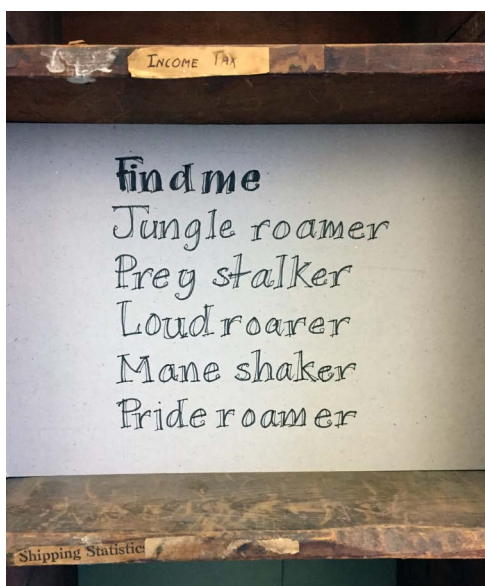 INCOME TAX
Find me
Jungle roamer
Prey stalker
Loud roarer
Mane shaker
Pride roamer
Shipping Statistics